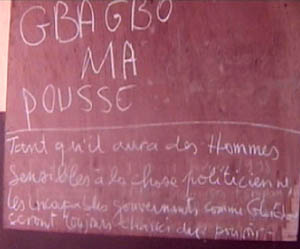 GBAGBO
MA
POUSSE
Tant qu'il aura des Hommes
sensibles à la chose politicienne,
les incapables gouvernants comme
seront toujours du pouvoir